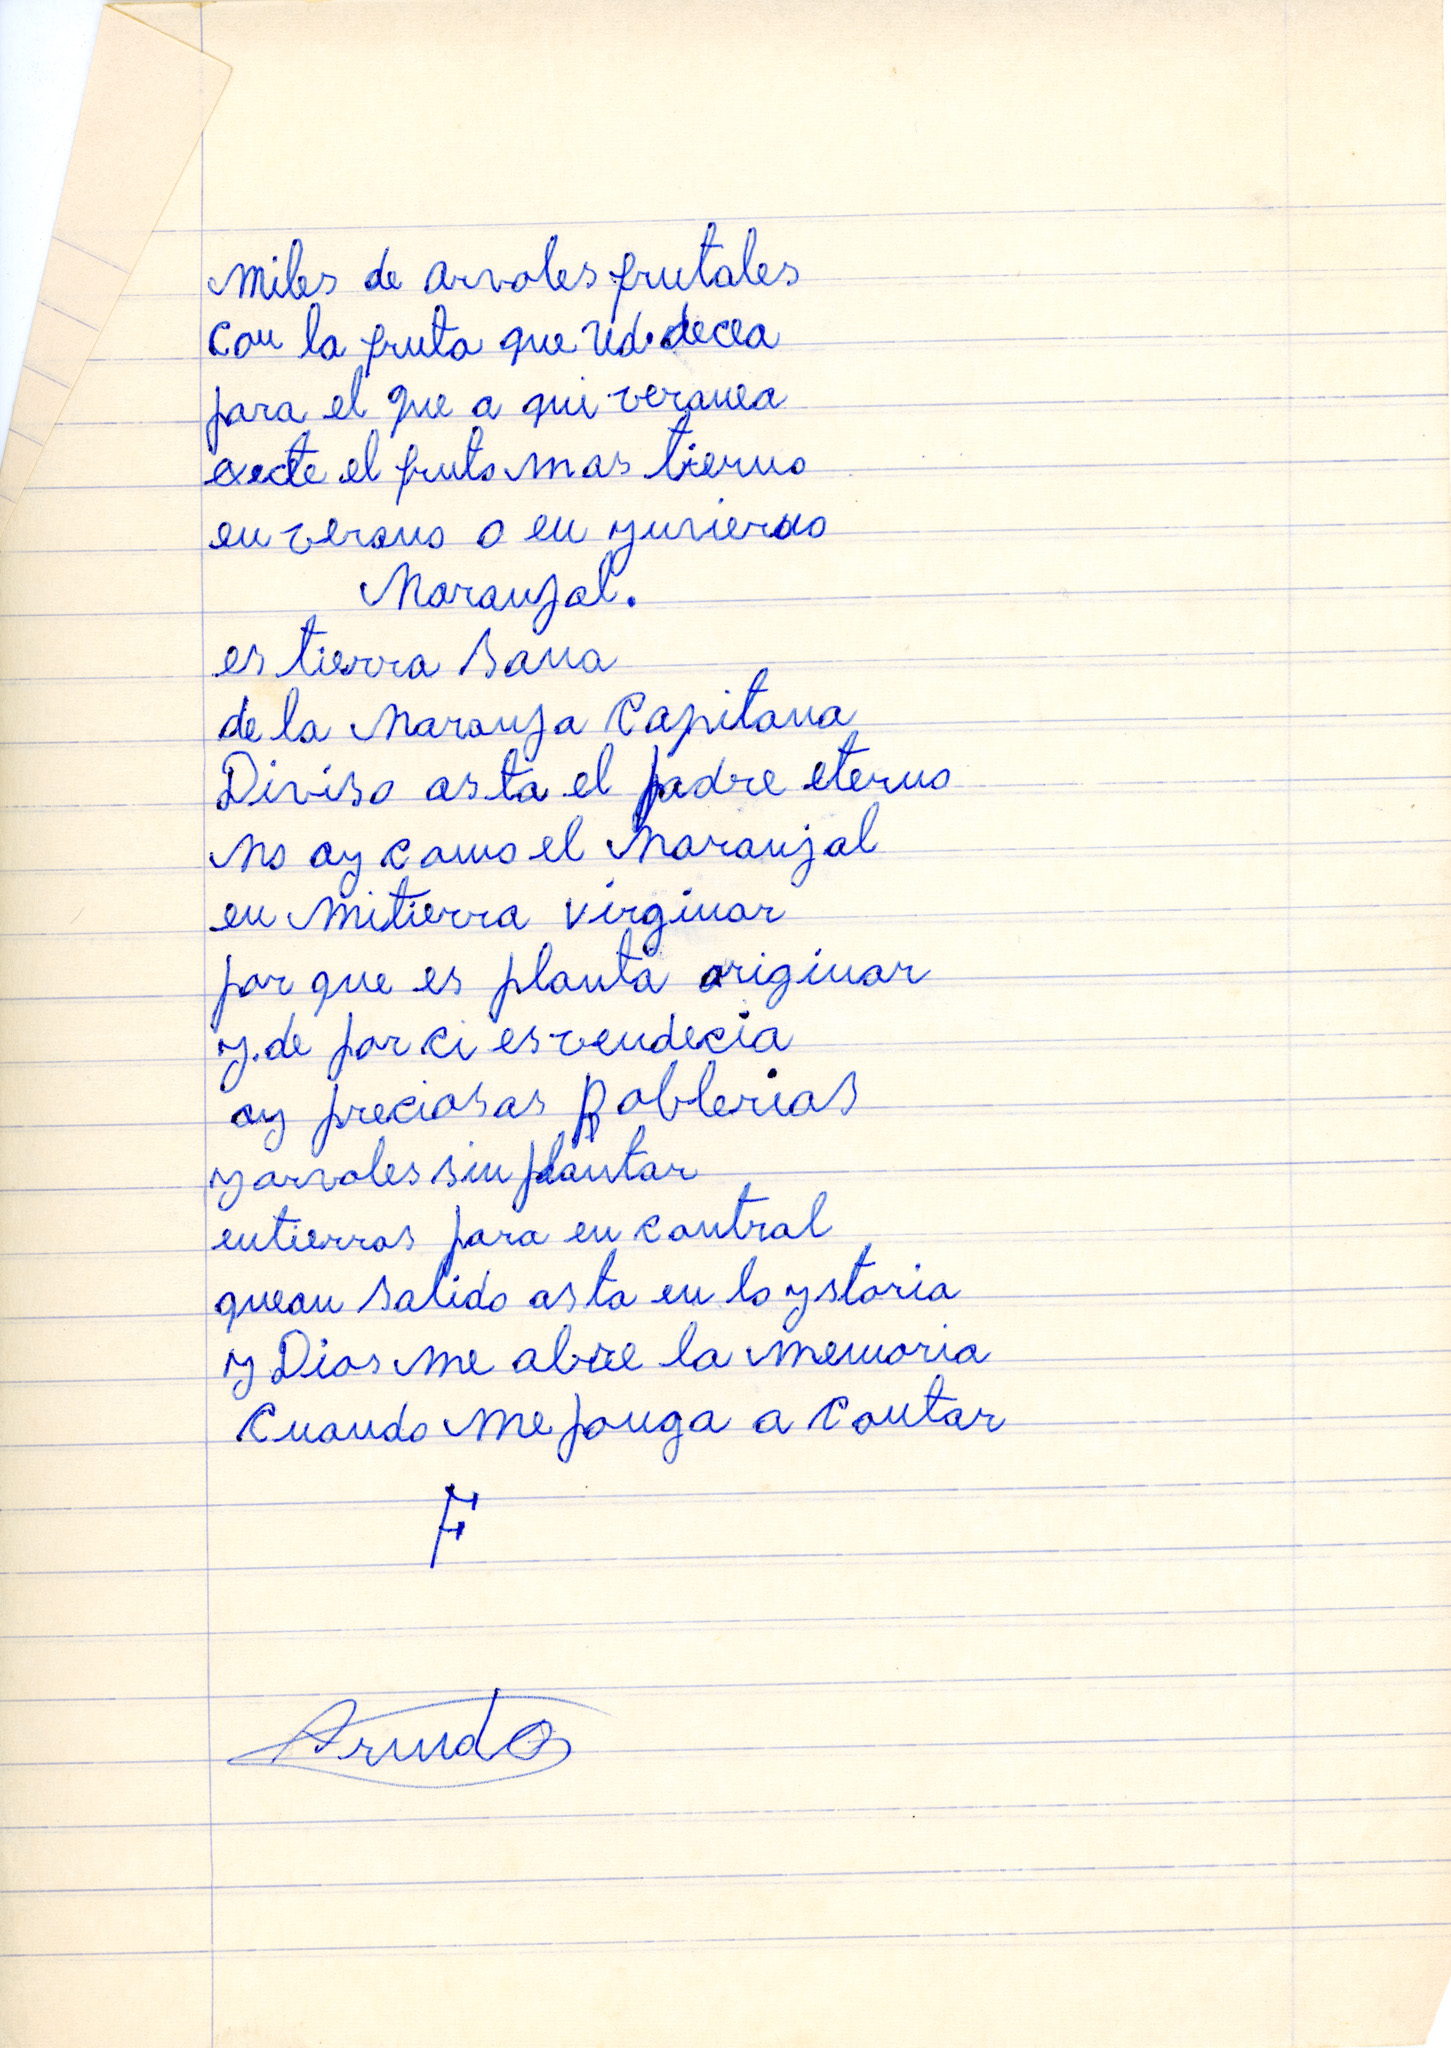 miles de arvoles frutales
con la fruta que Ud. decea
para el que a qui veranea
execte el fruto mas tierno
en verano o en ynvierno
Naranjal.
es tierra sana
de la Naranja Capitana
Diviso asta el padre eterno
no ay como el Naranjal
en mi tierra virginar
por que es planta originar
y. de por ci es vendecia
ay preciosas Roblerias
y arvoles sin plantar
entierros para en contral
quean salido asta en la ystoria
y Dios me abre la memoria
Cuando me ponga a contar
F